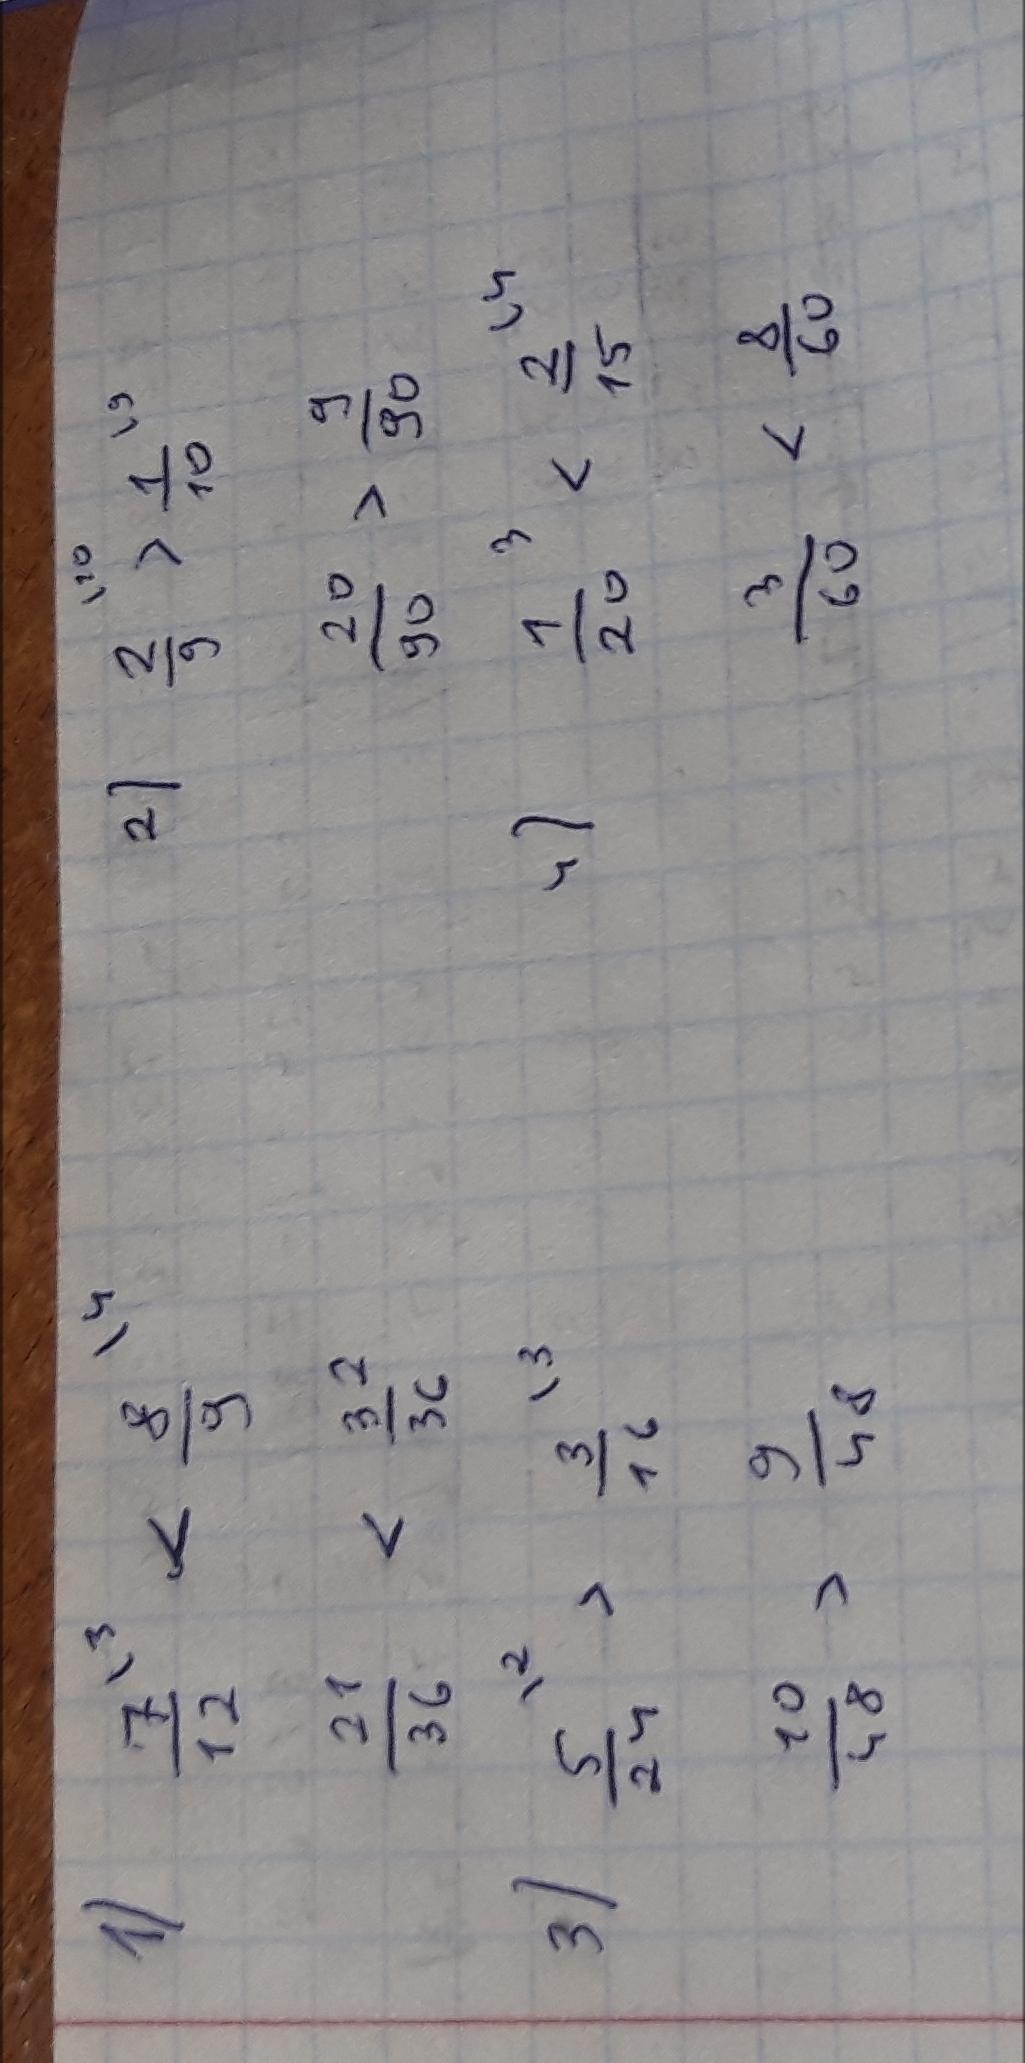 1) 7/12 \3 < 8/9 \4
21/36 < 32/36
2) 2/9 \10 > 1/10 \9
20/90 > 9/90
3) 5/24 \2 > 3/16 \3
10/48 > 9/48
4) 1/20 3 < 2/15 \4
3/60 < 8/60